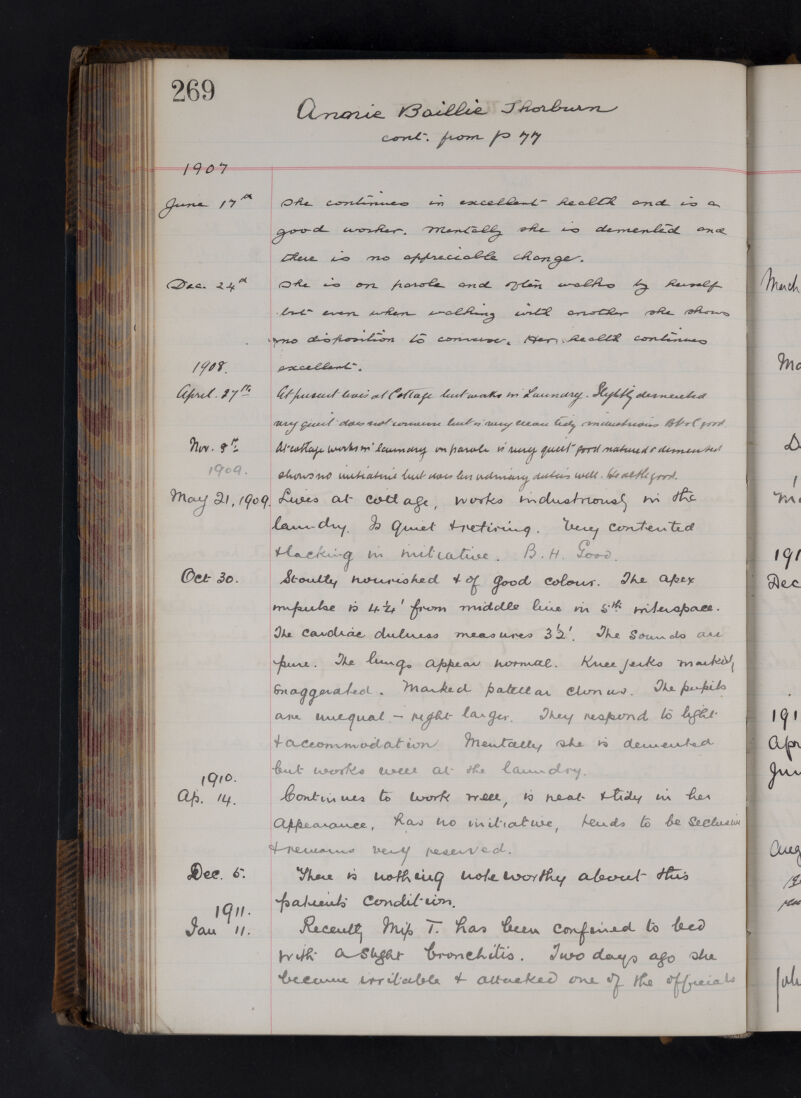 269
Annie Baillie Thorburn
cont. from p 77
1907
June 17th She continues in excellent health and is a
good worker. Mentally she is demented and
there is no appreciable change.
Dec. 24th She is on parole and often walks by herself
but even when walking with another she shows
no disposition to converse. Her health continues
1908. excellent.
April. 27th At present lives at Cottage but works in Laundry. Slightly demented
very quiet does not converse but is very clean tidy industrious B.H. good
Nov. 9th At cottage works in laundry on parole is very quiet good natured & demented
1909. shows no initiative but does her ordinary duties well. Health good.
May 21, 1909. Lives at cottage, works industriously in the
laundry. Is quiet & retiring. Very contented
& lacking in initiative. B.H. Good.
Oct 30. Stoutly nourished & of good colour. The apex
impulse is 4¼' from middle line in 5th interspace.
The cardiac dulness measures 3½'. The sounds are
pure. The lungs appear normal. Knee jerks markedly
exaggerated. Marked patellar clonus. The pupils
are unequal – right larger. They respond to light
& accommodation. Mentally she is demented
but works well at the laundry.
1910.
Ap. 14. Continues to work well, is neat & tidy in her
appearance, has no initiative, tends to be seclusive
& remains very reserved.
Dec. 5. There is nothing noteworthy about this
patient's condition.
1911.
Jan 11. Recently Miss T. has been confined to bed
with a slight bronchitis. Two days ago she
became irritable & attacked one of the officials
March
D
1
191
Dec
191
Apr